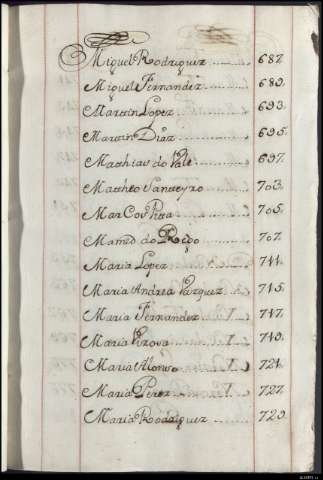 Miguel Rodriguez ........ 687.
Miguel Fernandez ........ 689.
Marttin Lopez ........ 693.
Marttin Diaz ........ 695.
Matthias do Vale ........ 697.
Mattheo Santteyro ........ 703.
Marcos Pitta ........ 705.
Mamed do Rego ........ 707.
Maria Lopez ........ 711.
Maria Andrea Vazquez ........ 715.
Maria Fernandez ........ 717.
Maria ........ 719.
Maria Alonso ........ 721.
Maria Perez ........ 727.
Maria Rodriguez ........ 729.